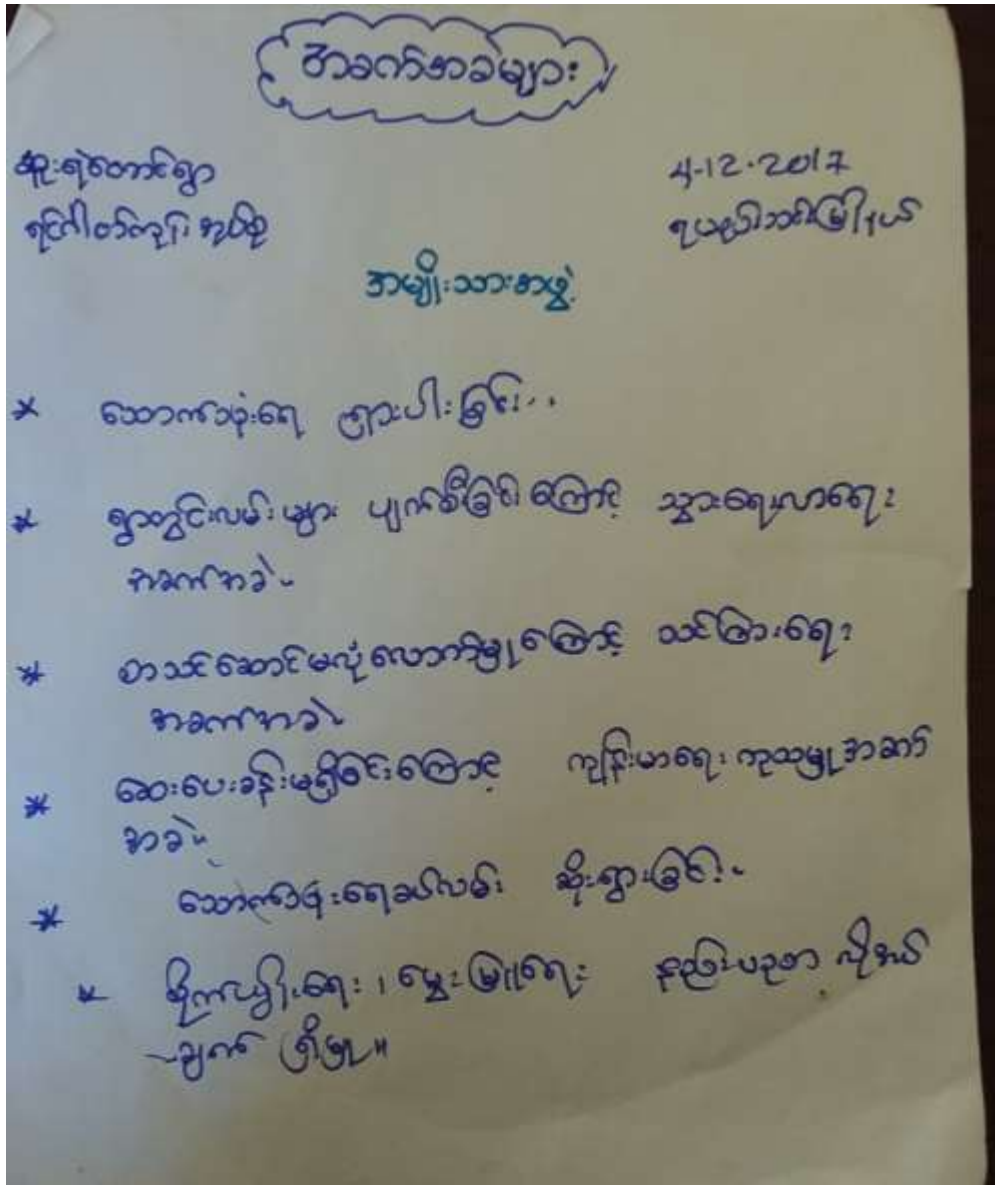 အခက်အခဲများ
ဆူးရဲတောင်ရွာ 4-12-2017
အုပ်စု ရမည်းသင်းမြို့နယ်
အမျိုးသားအဖွဲ့
* သောက်သုံးရေ ရှားပါးခြင်း..
* ရွာတွင်းလမ်းများ ပျက်စီးခြင်းကြောင့် သွားရေးလာရေး
အခက်အခဲ။
* စာသင်ဆောင်မလုံလောက်မှုကြောင့် သင်ကြားရေး
အခက်အခဲ
* ဆေးပေးခန်းမရှိခြင်းကြောင့် ကျန်းမာရေး ကုသမှုအခက်
အခဲ။
* သောက်သုံးရေခပ်လမ်း ဆိုးရွားခြင်း။
* စိုက်ပျိုးရေး၊ မွေးမြူရေး နည်းပညာ လိုအပ်
-ချက် ရှိမှု။